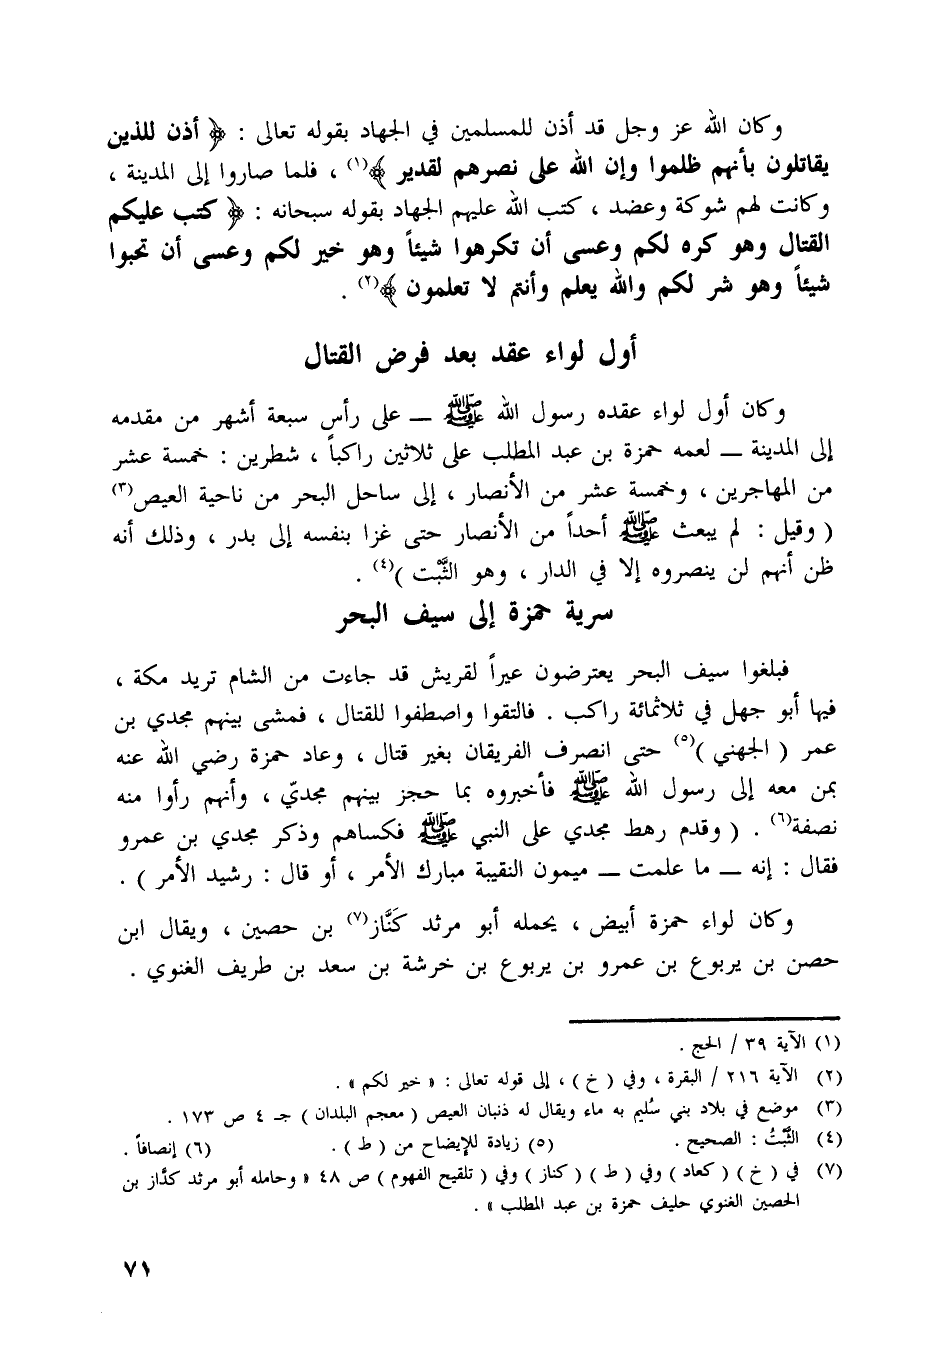 وكان الله عز وجل قد أذن للمسلمين في الجهاد بقوله تعالى : ﴿ أذن للذين
يقاتلون بأنهم ظلموا وإن الله على نصرهم لقدير ﴾(١) ، فلما صاروا إلى المدينة ،
وكانت لهم شوكة وعضد ، كتب الله عليهم الجهاد بقوله سبحانه : ﴿ كتب عليكم
القتال وهو كره لكم وعسى أن تكرهوا شيئاً وهو خير لكم وعسى أن تحبوا
شيئاً وهو شر لكم والله يعلم وأنتم لا تعلمون ﴾(٢) .
أول لواء عقد بعد فرض القتال
وكان أول لواء عقده رسول الله ﷺ ــ على رأس سبعة أشهر من مقدمه
إلى المدينة ــ لعمه حمزة بن عبد المطلب على ثلاثين راكباً ، شطرين : خمسة عشر
من المهاجرين ، وخمسة عشر من الأنصار ، إلى ساحل البحر من ناحية العيص(٣)
( وقيل : لم يبعث ﷺ أحداً من الأنصار حتى غزا بنفسه إلى بدر ، وذلك أنه
ظن أنهم لن ينصروه إلا في الدار ، وهو الثَّبْت )(٤) .
سرية حمزة إلى سيف البحر
فبلغوا سيف البحر يعترضون عيراً لقريش قد جاءت من الشام تريد مكة ،
فيها أبو جهل في ثلاثمائة راكب . فالتقوا واصطفوا للقتال ، فمشى بينهم مجدي بن
عمر ( الجهني )(٥) حتى انصرف الفريقان بغير قتال ، وعاد حمزة رضي الله عنه
بمن معه إلى رسول الله ﷺ فأخبروه بما حجز بينهم مجديّ ، وأنهم رأوا منه
نصفة(٦) . ( وقدم رهط مجدي على النبي ﷺ فكساهم وذكر مجدي بن عمرو
فقال : إنه ــ ما علمت ــ ميمون النقيبة مبارك الأمر ، أو قال : رشيد الأمر ) .
وكان لواء حمزة أبيض ، يحمله أبو مرثد كَنَّاز(٧) بن حصين ، ويقال ابن
حصن بن يربوع بن عمرو بن يربوع بن خرشة بن سعد بن طريف الغنوي .
(١) الآية ٣٩ / الحج .
(٢) الآية ٢١٦ / البقرة ، وفي ( خ ) ، إلى قوله تعالى : « خير لكم » .
(٣) موضع في بلاد بني سُليم به ماء ويقال له ذنبان العيص ( معجم البلدان ) جـ ٤ ص ١٧٣ .
(٤) الثَّبْتُ : الصحيح . (٥) زيادة للإيضاح من ( ط ) . (٦) إنصافاً .
(٧) في ( خ ) ( كعاد ) وفي ( ط ) ( كناز ) وفي ( تلقيح الفهوم ) ص ٤٨ « وحامله أبو مرثد كدَّاز بن
الحصين الغنوي حليف حمزة بن عبد المطلب » .
٧١